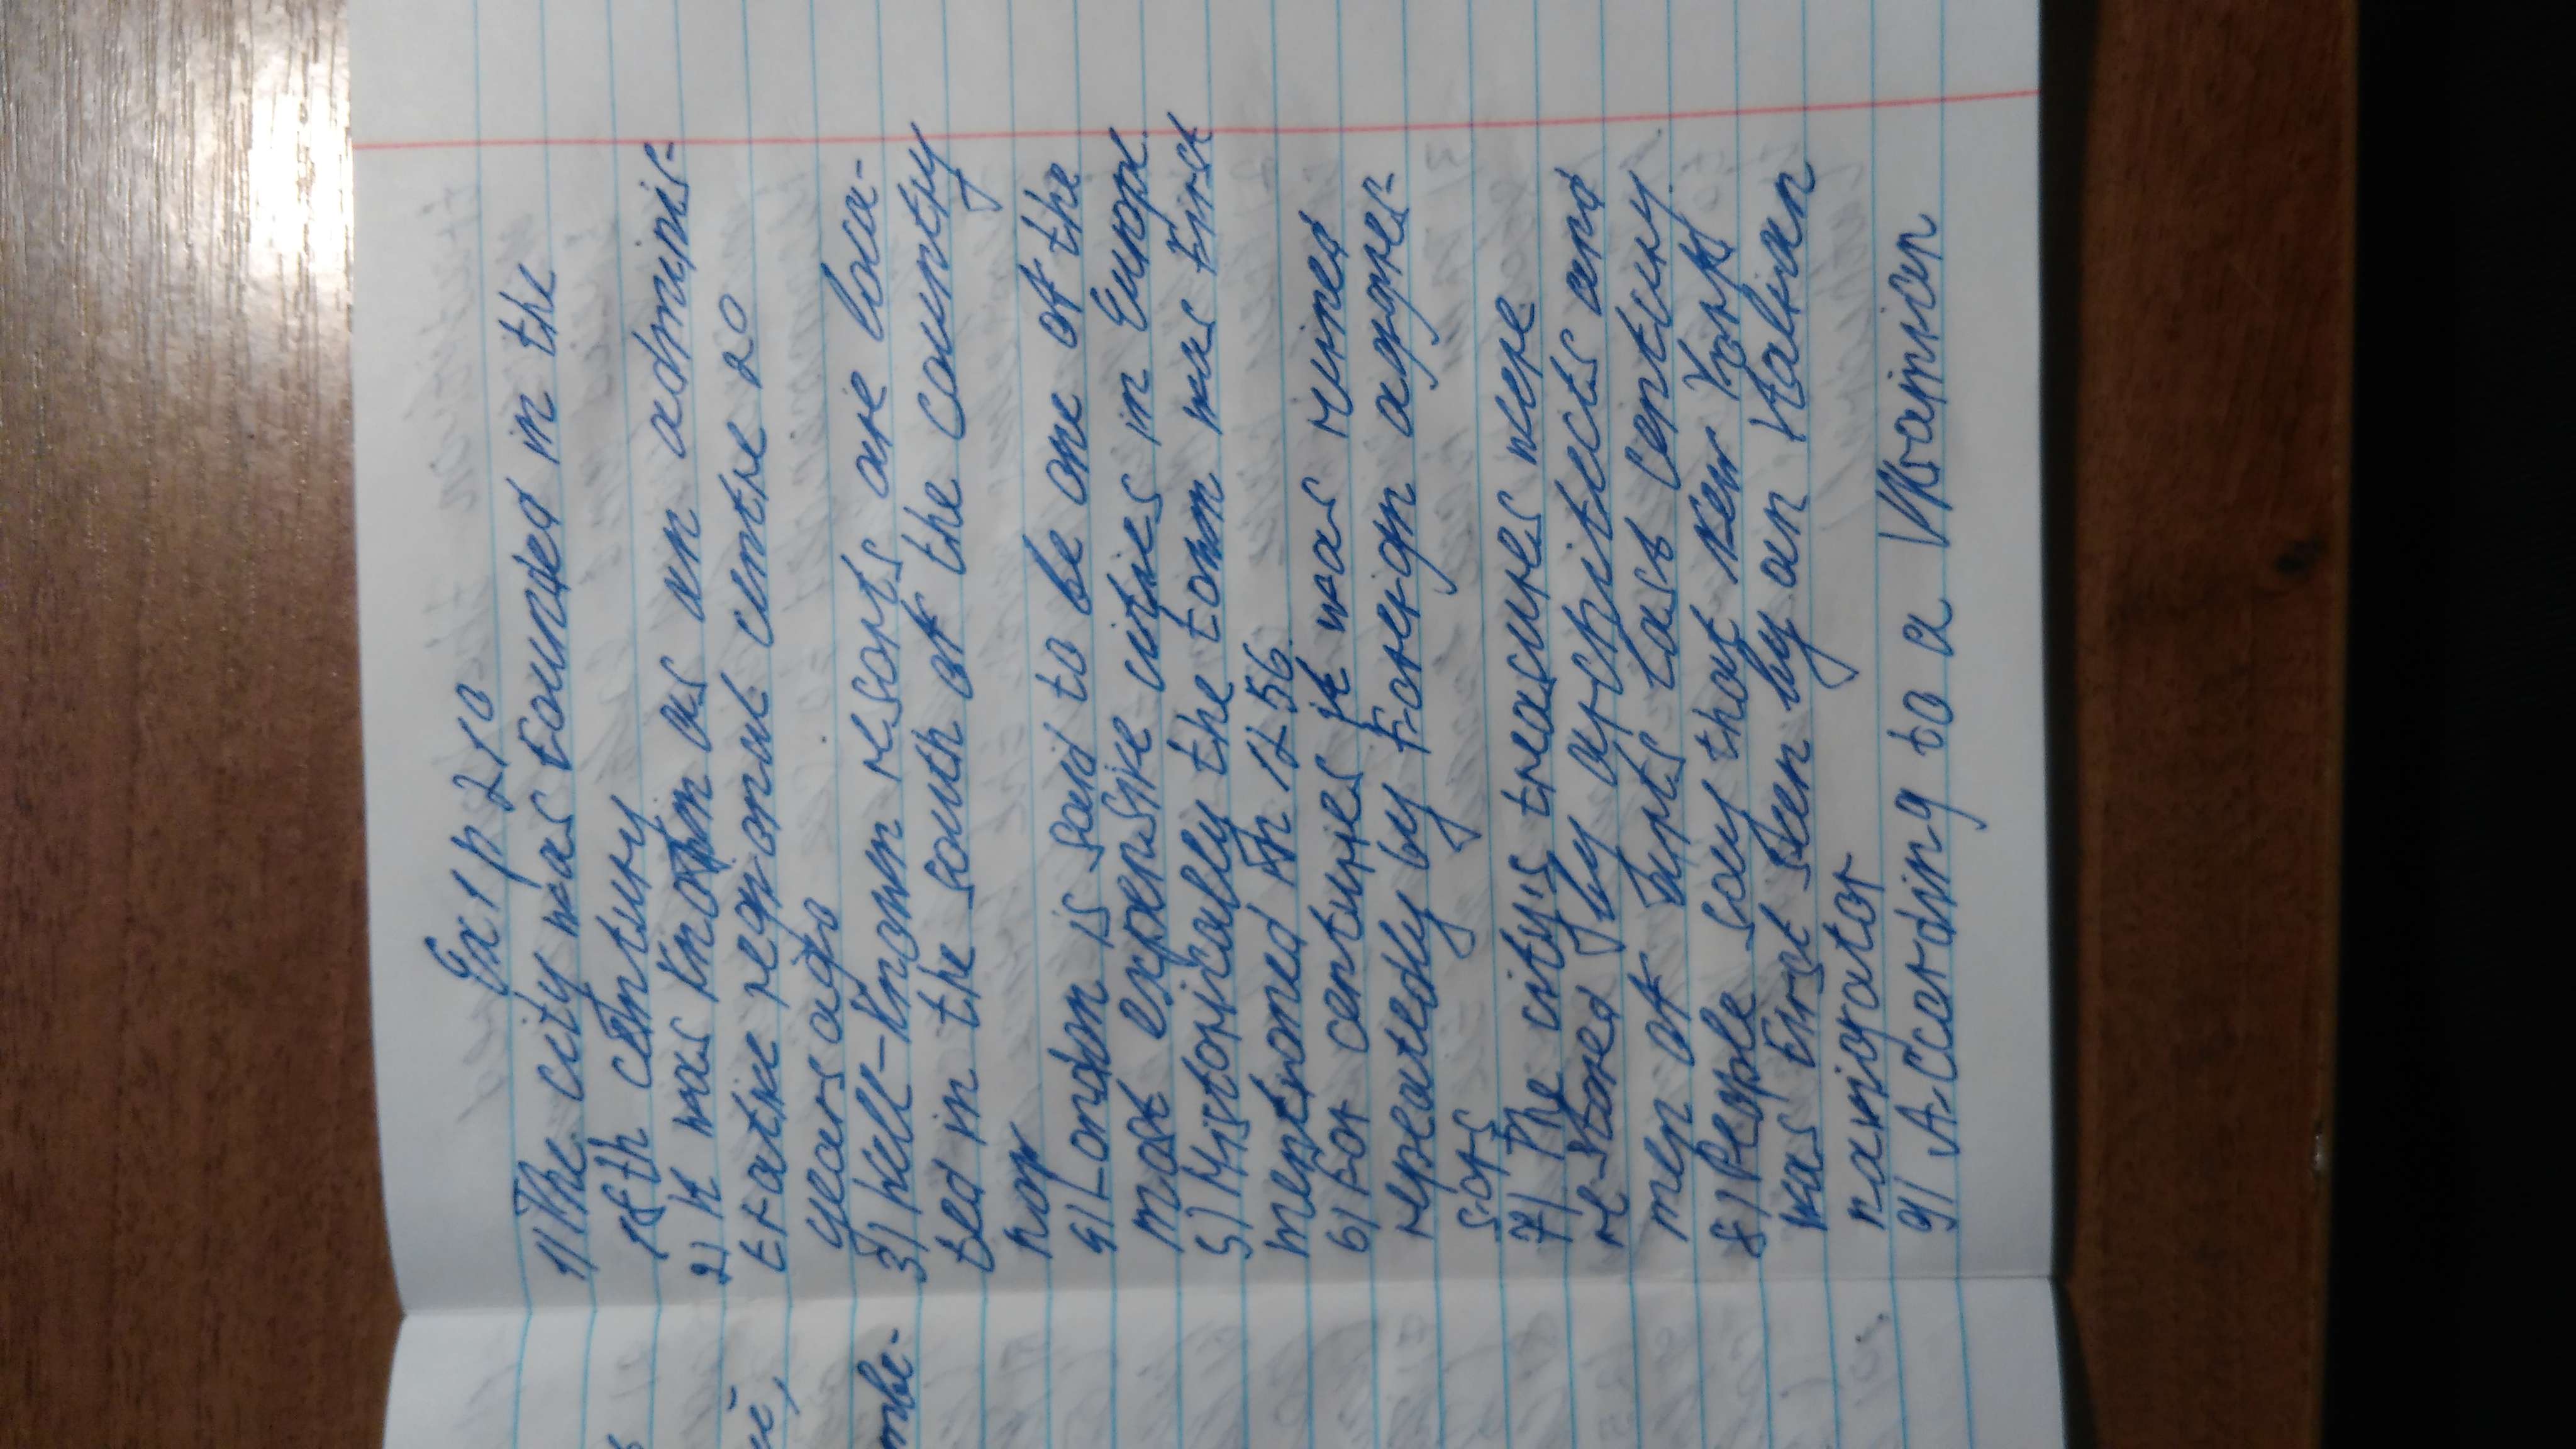 Ex 1 p 210
1) The city was founded in the
18th century
2) It was known as an adminis-
trative regional centre 20
years ago
3) Well-known resorts are loca-
ted in the south of the country
now
4) London is said to be one of the
most expensive cities in Europe.
5) Historically the town was first
mentioned in 1256.
6) For centuries it was ruined
repeatedly by foreign agres-
sors
7) The city's treasures were
restored by architects and
men of arts last century.
8) People say that New York
was first seen by an Italian
navigator
9) According to a Ukrainian